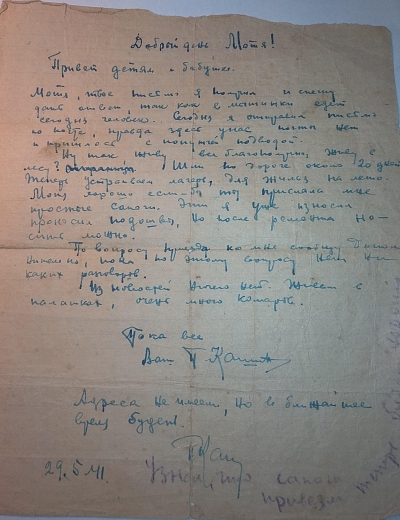 Добрый день Мотя!
Привет детям и бабушке.
Мотя, твое письмо я получил и спешу
дать ответ, так как в едет
сегодня человек. Сегодня я отправил письмо
по почте, правда здесь у нас почты нет
и пришлось с попутной подводой.
Ну так, живу все благополучно, живу в
лесу? Шли по дороге около 20 дней
теперь устраиваем лагерь, для жилья на лето.
Мотя хорошо если бы ты прислала мне
простые сапоги. Эти я уже износил
проносил подошвы, но после ремонта но-
сить можно.
По вопросу приезда ко мне сообщу дополн
нительно, пока по этому вопросу нет ни
каких разговоров.
Из новостей ничего нет. Живем в
палатках, очень много комаров.
Пока все
Ваш П
Адреса не имеем, но в ближайшее
время будет
29.5 41.
Узнай, что сапоги
привезли